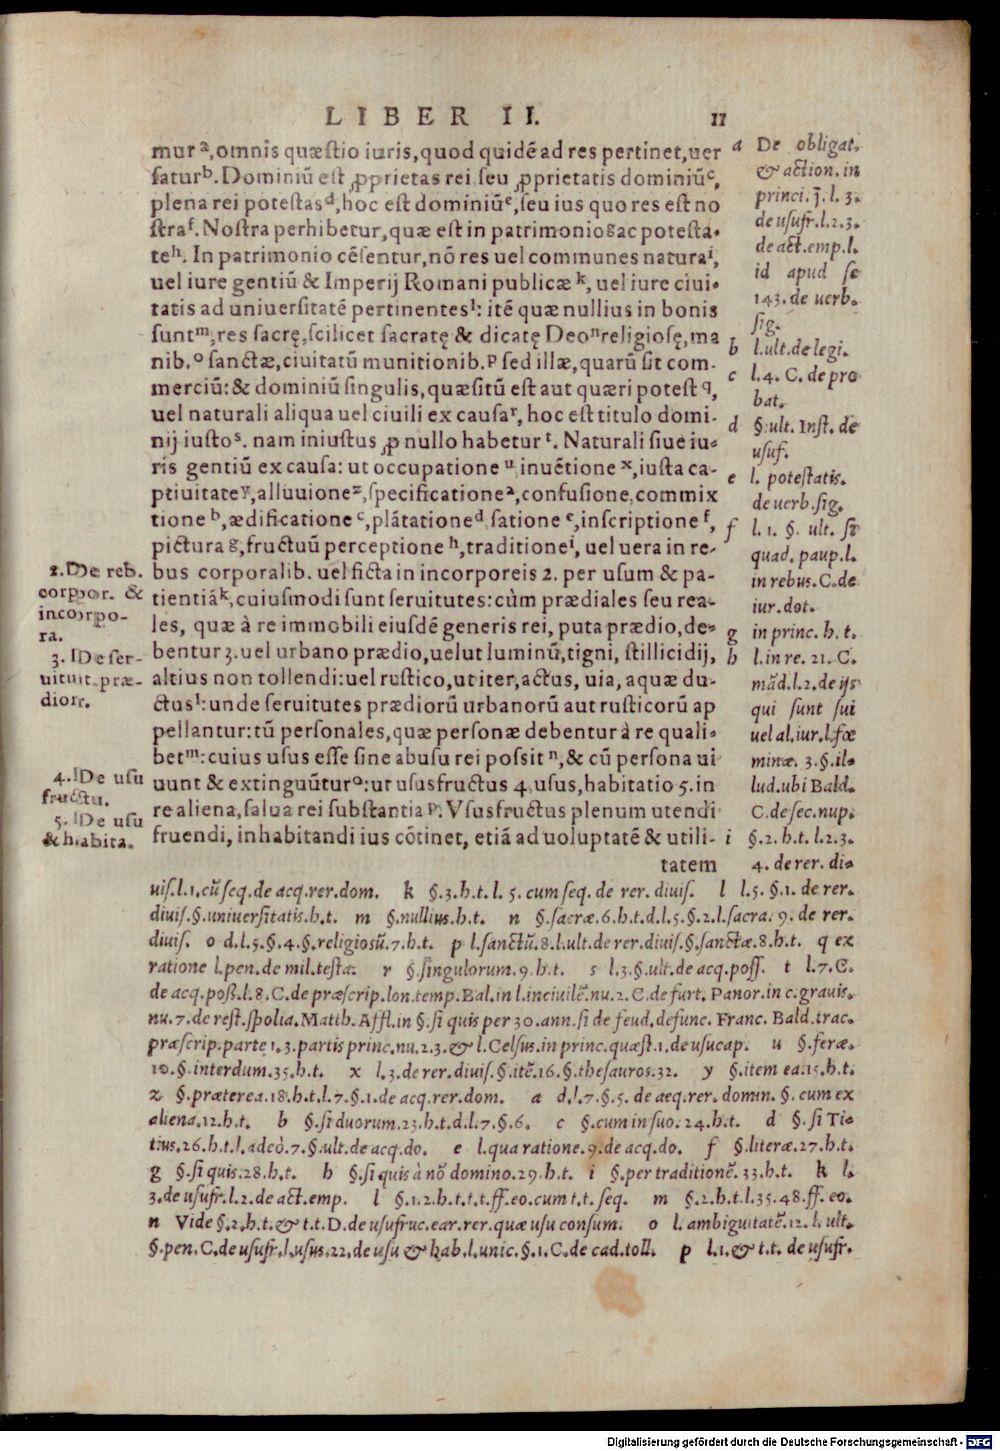 LIBER II. 11
mur ª, omnis quæstio iuris, quod quidē ad res pertinet, uer
saturᵇ. Dominiū est ꝓprietas rei seu ꝓprietatis dominiūᶜ,
plena rei potestasᵈ, hoc est dominiūᵉ, seu ius quo res est no
straᶠ. Nostra perhibetur, quæ est in patrimonio ᵍ ac potesta-
teʰ. In patrimonio cēsentur, nō res uel communes naturaⁱ,
uel iure gentiū & Imperij Romani publicæ ᵏ, uel iure ciui-
tatis ad uniuersitatē pertinentesˡ: itē quæ nullius in bonis
suntᵐ, res sacrę, scilicet sacratę & dicatę Deoⁿ religiosę, ma
nib.ᵒ sanctæ, ciuitatū munitionib.ᵖ sed illæ, quarū sit com-
merciū: & dominiū singulis, quæsitū est aut quæri potest q,
uel naturali aliqua uel ciuili ex causaʳ, hoc est titulo domi-
nij iustoˢ. nam iniustus ꝓ nullo habetur ᵗ. Naturali siue iu-
ris gentiū ex causa: ut occupatione ᵘ, inuētione ˣ, iusta ca-
ptiuitateʸ, alluuioneᶻ, specificatione ª, confusione, commix
tione ᵇ, ædificatione ᶜ, plātatione ᵈ satione ᵉ, inscriptione ᶠ,
pictura ᵍ, fructuū perceptione ʰ, traditioneⁱ, uel uera in re-
bus corporalib. uel ficta in incorporeis 2. per usum & pa-
tientiáᵏ, cuiusmodi sunt seruitutes: cùm prædiales seu rea-
les, quæ à re immobili eiusdē generis rei, puta prædio, de-
bentur 3. uel urbano prædio, uelut luminū, tigni, stillicidij,
altius non tollendi: uel rustico, ut iter, actus, uia, aquæ du-
ctusˡ: unde seruitutes prædiorū urbanorū aut rusticorū ap
pellantur: tū personales, quæ personæ debentur à re quali-
betᵐ: cuius usus esse sine abusu rei possit ⁿ, & cū persona ui
uunt & extinguūturᵒ: ut ususfructus 4. usus, habitatio 5. in
re aliena, salua rei substantia ᵖ. Vsusfructus plenum utendi
fruendi, inhabitandi ius cōtinet, etiā ad uoluptatē & utili-
tatem
2. De reb.
corpor. &
incorpo-
ra.
3. De ser-
uitut. præ-
dior.
4. De usu
fructu.
5. De usu
& habita.
a De obligat.
& action. in
princi. j. l. 3.
de usufr. l. 2. 3.
de act. emp. l.
id apud se
143. de uerb.
sig.
b l. ult. de legi.
c l. 4. C. de pro
bat.
d §. ult. Inst. de
usuf.
e l. potestatis.
de uerb. sig.
f l. 1. §. ult. si
quad. paup. l.
in rebus. C. de
iur. dot.
g in princ. h. t.
h l. in re. 21. C.
mād. l. 2. de ijs
qui sunt sui
uel al. iur. l. fœ
minæ. 3. §. il-
lud. ubi Bald.
C. de sec. nup.
i §. 2. h. t. l. 2. 3.
4. de rer. di-
uis. l. 1. cū seq. de acq. rer. dom. k §. 3. h. t. l. 5. cum seq. de rer. diuis. l l. 5. §. 1. de rer.
diuis. §. uniuersitatis. h. t. m §. nullius. h. t. n §. sacræ. 6. h. t. d. l. 5. §. 2. l. sacra. 9. de rer.
diuis. o d. l. 5. §. 4. §. religiosū. 7. h. t. p l. sanctū. 8. l. ult. de rer. diuis. §. sanctæ. 8. h. t. q ex
ratione l. pen. de mil. testa. r §. singulorum. 9. h. t. s l. 3. §. ult. de acq. poss. t l. 7. C.
de acq. poss. l. 8. C. de præscrip. lon. temp. Bal. in l. inciuilē. nu. 2. C. de furt. Panor. in c. grauis.
nu. 7. de rest. spolia. Matth. Affl. in §. si quis per 30. ann. si de feud. defunc. Franc. Bald. trac.
præscrip. parte 1. 3. partis princ. nu. 2. 3. & l. Celsus. in princ. quæst. 1. de usucap. u §. feræ.
10. §. interdum. 35. h. t. x l. 3. de rer. diuis. §. itē. 16. §. thesauros. 32. y §. item ea. 15. h. t.
z §. præterea. 18. h. t. l. 7. §. 1. de acq. rer. dom. a d. l. 7. §. 5. de aeq. rer. domin. §. cum ex
aliena. 12. h. t. b §. si duorum. 23. h. t. d. l. 7. §. 6. c §. cum in suo. 24. h. t. d §. si Ti-
tius. 26. h. t. l. adeò. 7. §. ult. de acq. do. e l. qua ratione. 9. de acq. do. f §. literæ. 27. h. t.
g §. si quis. 28. h. t. h §. si quis à nō domino. 29. h. t. i §. per traditionē. 33. h. t. k l.
3. de usufr. l. 2. de act. emp. l §. 1. 2. h. t. t. t. ff. eo. cum t. t. seq. m §. 2. h. t. l. 35. 48. ff. eo.
n Vide §. 2. h. t. & t. t. D. de usufruc. ear. rer. quæ usu consum. o l. ambiguitatē. 12. l. ult.
§. pen. C. de usufr. l. usus. 22. de usu & hab. l. unic. §. 1. C. de cad. toll. p l. 1. & t. t. de usufr.
Digitalisierung gefördert durch die Deutsche Forschungsgemeinschaft - DFG